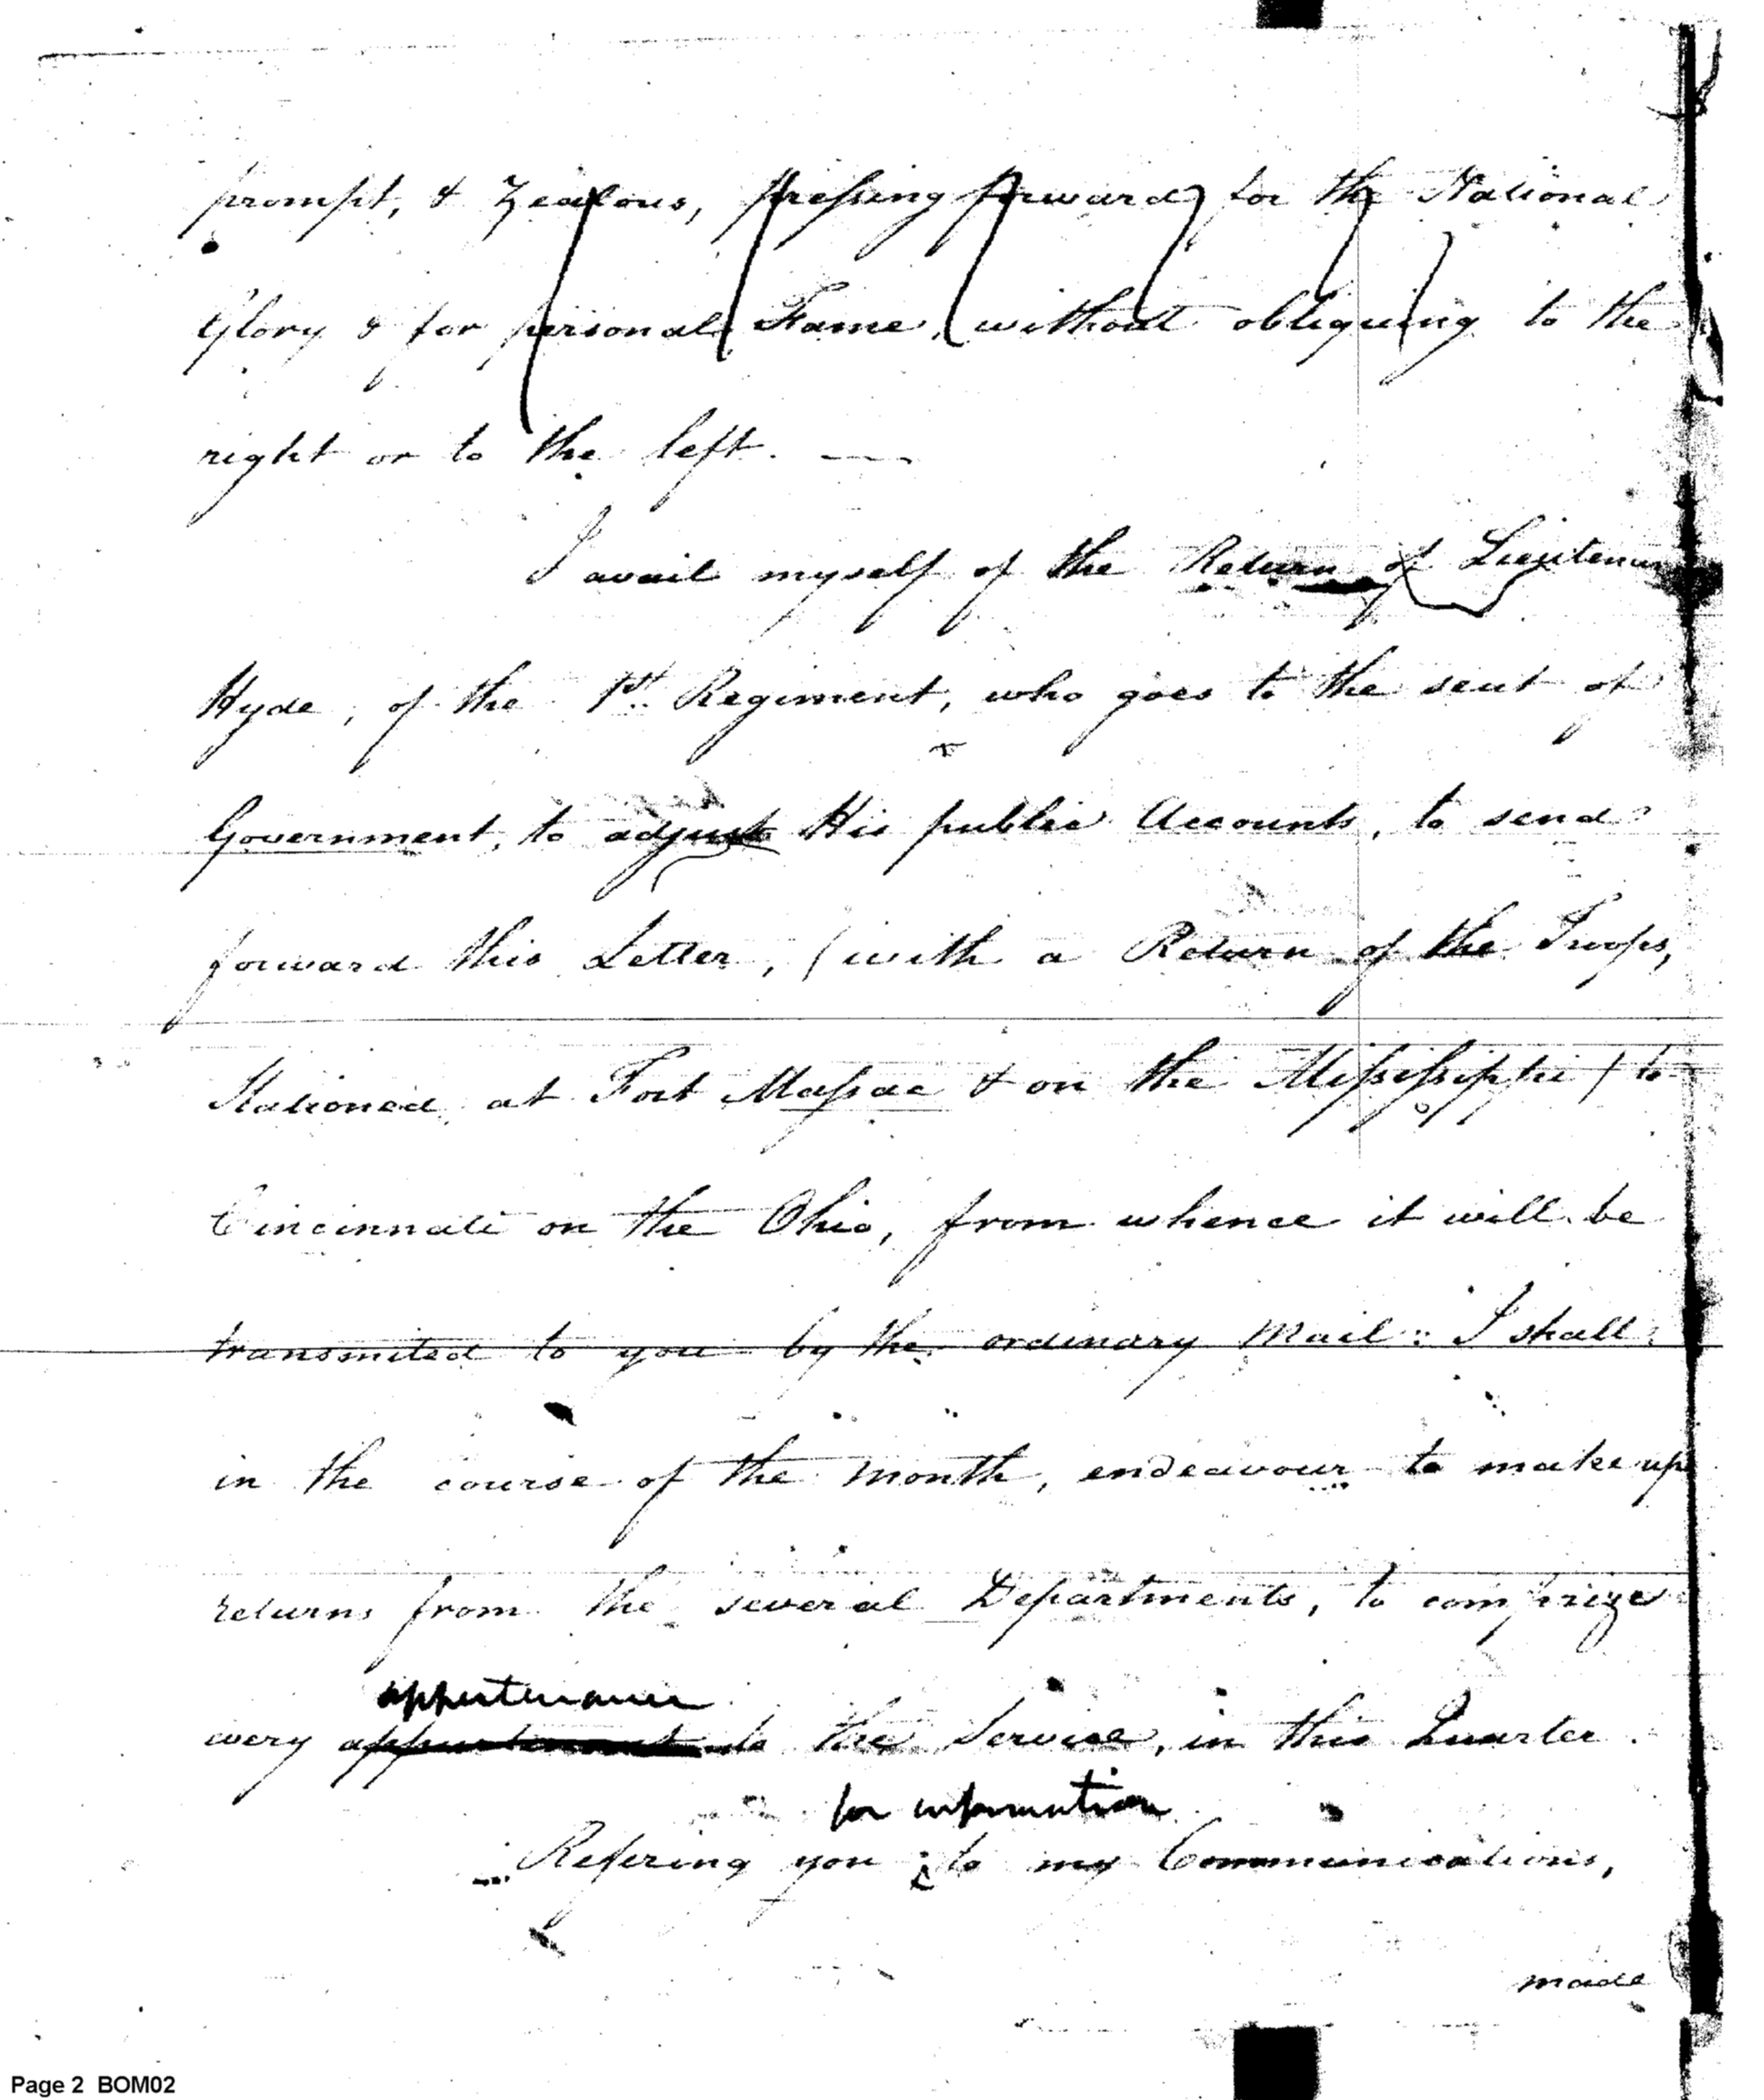 prompt, & Zealous, pressing forward for the National
Glory & for personal Fame, without obliquing to the
right or to the left. —
I avail myself of the Return of Lieutenant
Hyde, of the 1st. Regiment, who goes to the seat of
Government, to adjust His public Accounts, to send
forward this Letter, (with a Return of the Troops,
Stationed at Fort Massac & on the Mississippi) to
Cincinnati on the Ohio, from whence it will be
transmited to you by the ordinary Mail: I shall
in the course of the Month, endeavour to make up
returns from the several Departments, to comprize
appertenance
every to the Service, in this Quarter.
for information
Refering you to my Communications,
made
Page 2 BOM02